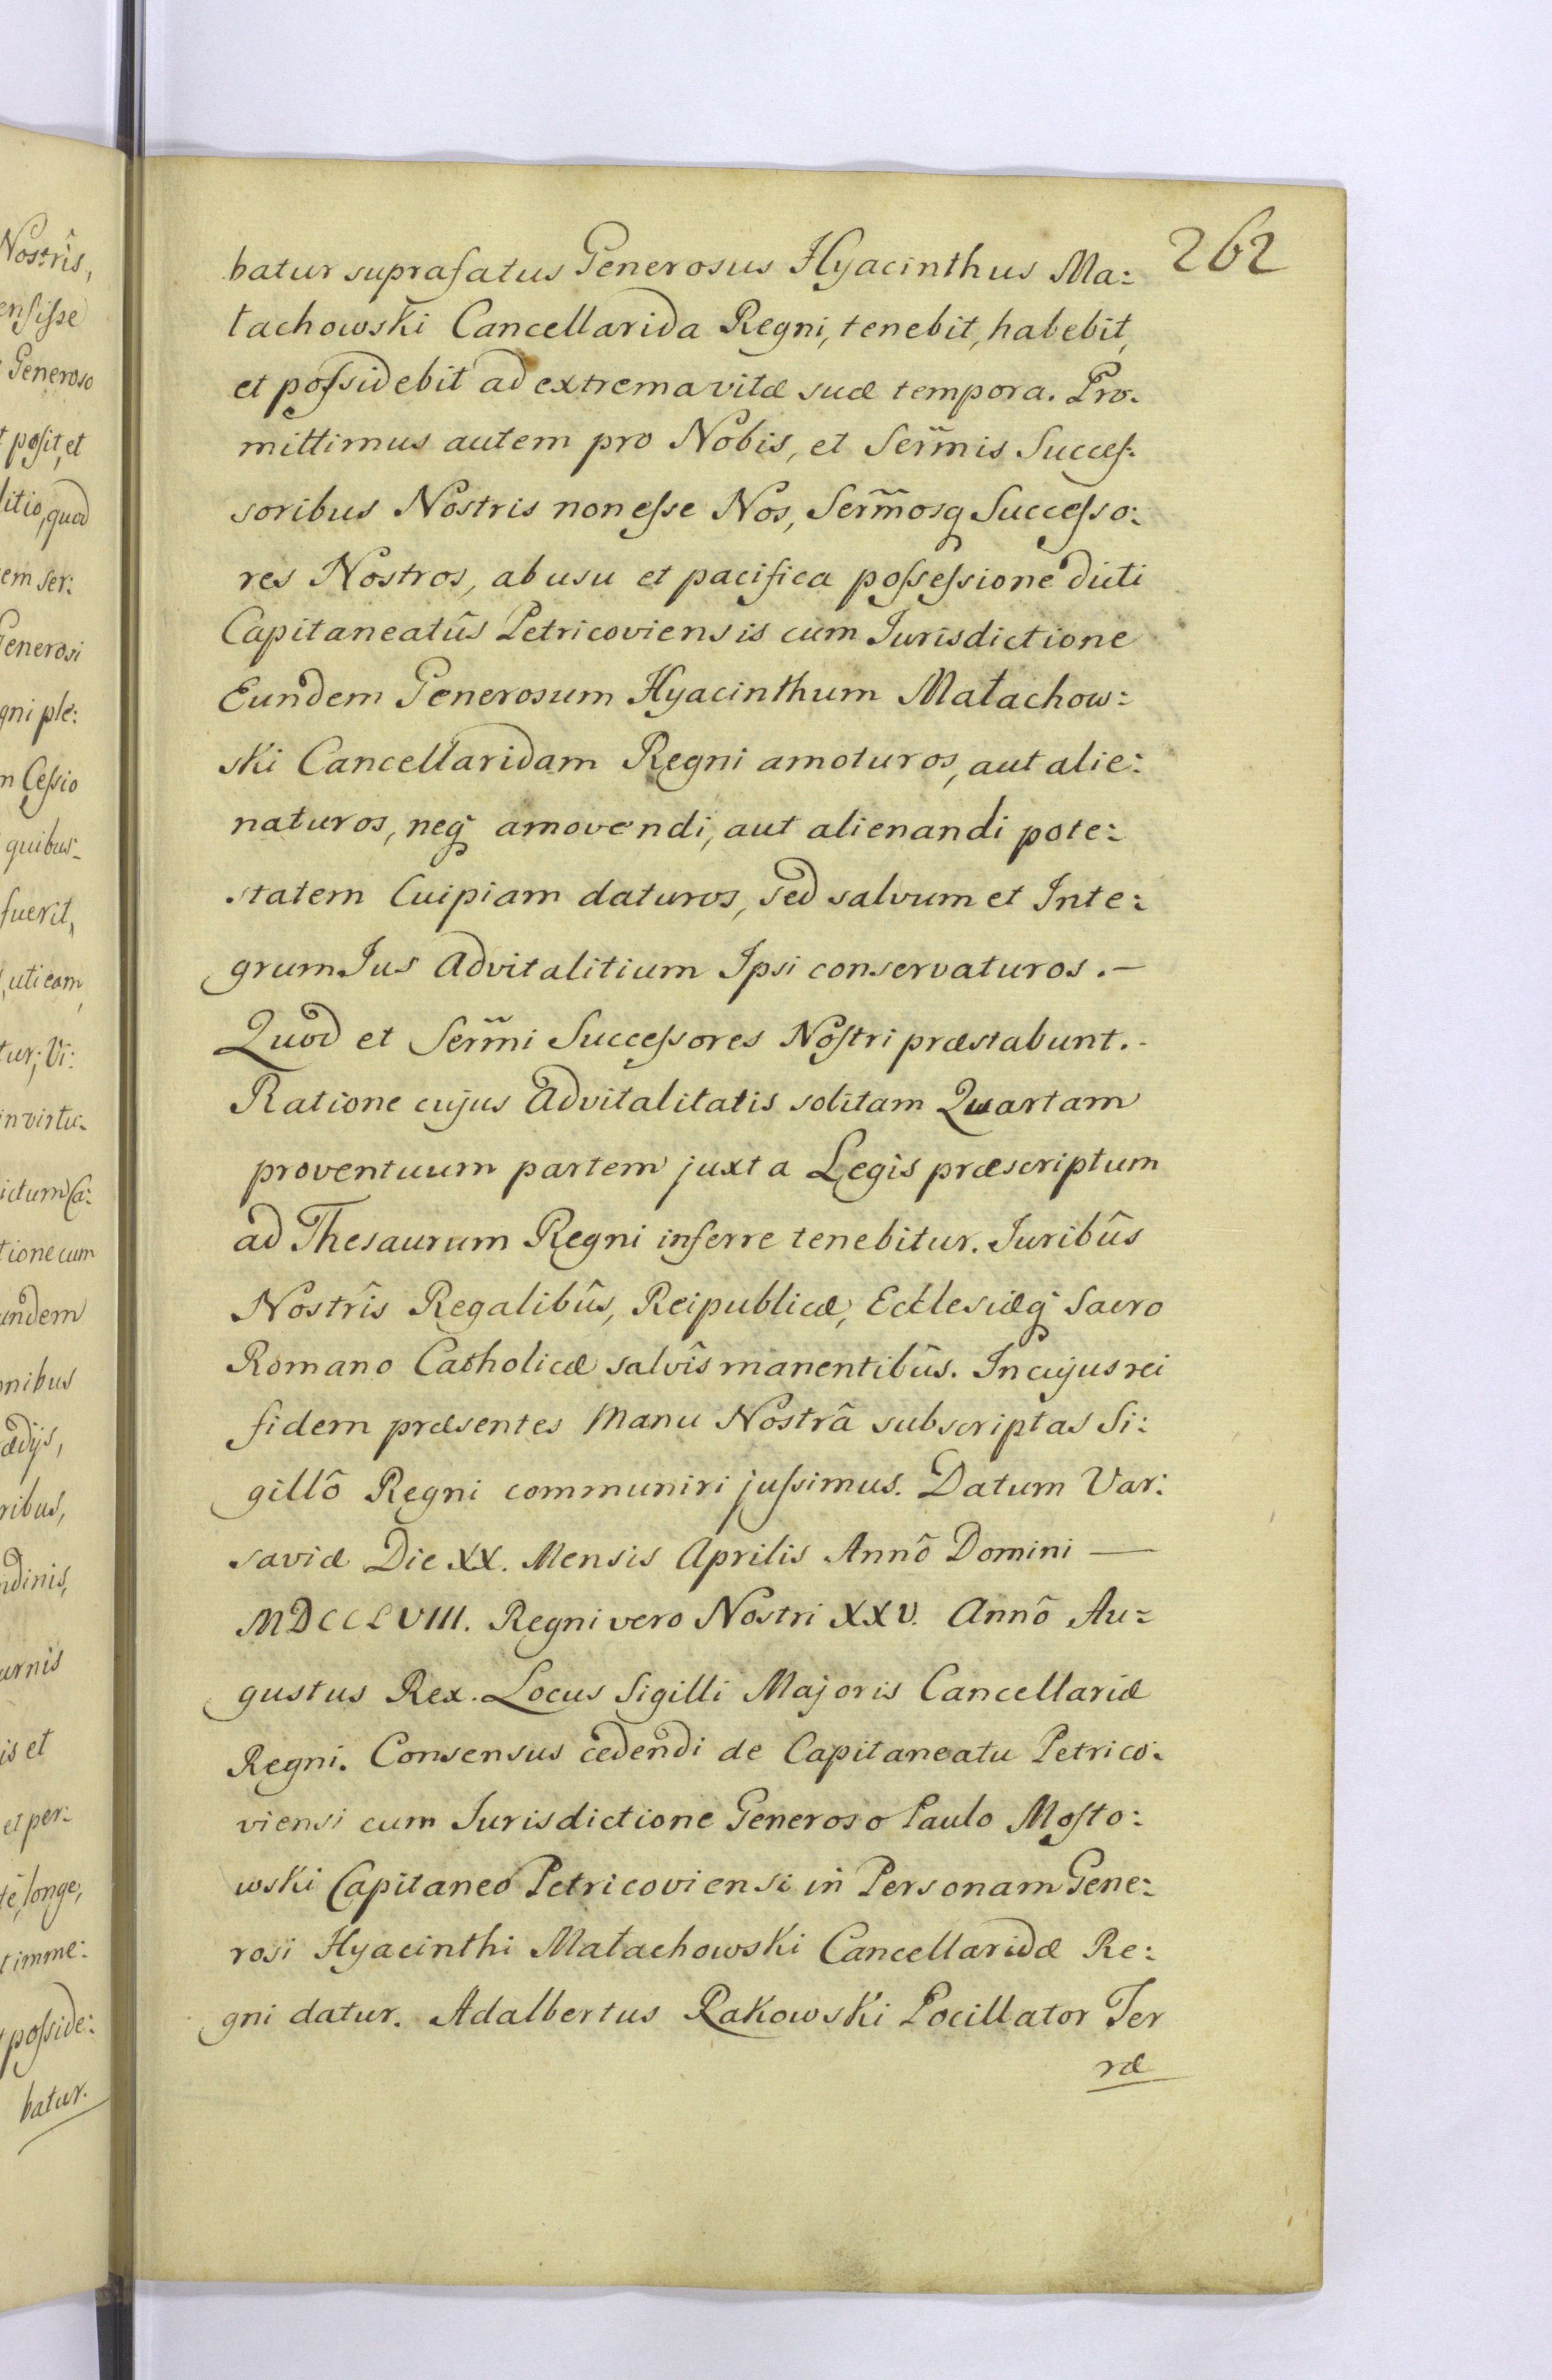 262
batur suprafatus Generosus Hyacinthus Ma:
łachowski Cancellarida Regni, tenebit, habebit,
et poſsidebit ad extrema vitæ suæ tempora. Pro:
mittimus autem pro Nobis, et Serm̃is Succeſ:
soribus Nostris non eſse Nos, Serm̃osq Succeſso:
res Nostros, ab usu et pacifica poſseſsione dicti
Capitaneatûs Petricoviensis cum Jurisdictione
Eundem Generosum Hyacinthum Małachow:
ski Cancellaridam Regni amoturos, aut alie:
naturos, neq̃ amovendi, aut alienandi pote:
statem Cuipiam daturos, sed salvum et Inte:
grum Jus Advitalitium Ipsi conservaturos. —
Quod et Serm̃i Succeſsores Noſtri præstabunt. -
Ratione cujus Advitalitatis solitam Quartam
proventuum partem juxta Legis præscriptum
ad Thesaurum Regni inferre tenebitur. Juribûs
Nostrîs Regalibûs, Reipublicæ, Ecclesiæq̃ Sacro
Romano Catholicæ salvîs manentibûs. In cujus rei
fidem præsentes Manu Nostrâ subscriptas Si:
gillô Regni communiri juſsimus. Datum Var:
saviæ Die XX. Mensis Aprilis Annô Domini —
MDCCLVIII. Regni vero Nostri XXV. Annô Au:
gustus Rex. Locus Sigilli Majoris Cancellariæ
Regni. Consensus cedendi de Capitaneatu Petrico:
viensi cum Jurisdictione Generoso Paulo Moſto:
wski Capitaneo Petricoviensi in Personam Gene:
rosi Hyacinthi Małachowski Cancellaridæ Re:
gni datur. Adalbertus Rakowski Pocillator Ter
ræ
Nostrîs,
enſiſse
Generoso
t poſit, et
litio, quod
em Ser:
Generosi
gni ple:
m Ceſsio
quibus-
fuerit,
, uti eam,
tur; Vi:
in virtu-
ictum Ca:
tione cum
undem
nibus
ædijs,
ribus,
ndinis,
urnis
is et
et per:
te, longe,
t imme:
poſside:
batur.